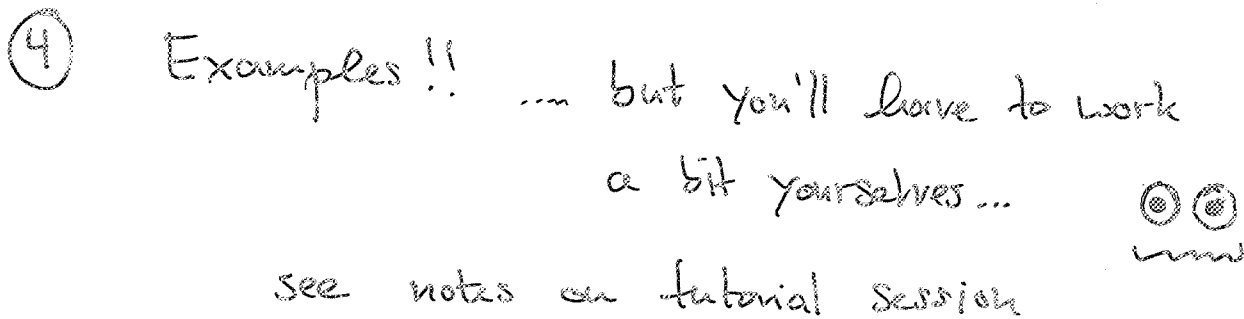 ④ Examples!! .... but you'll have to work
a bit yourselves...
see notes on tutorial session